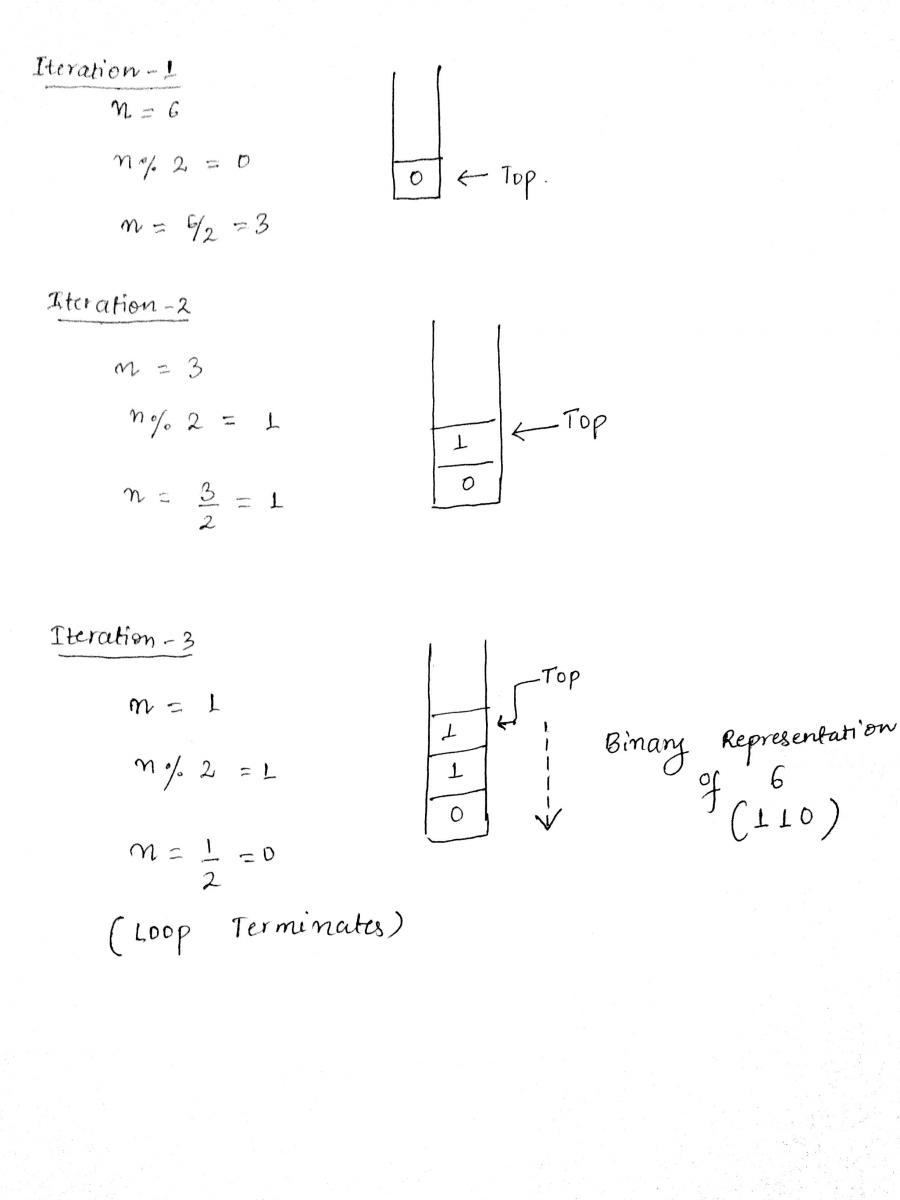 Iteration - 1
n = 6
n % 2 = 0
n = 6/2 = 3
0 ← Top.
Iteration - 2
n = 3
n % 2 = 1
n = 3/2 = 1
← Top
1
0
Iteration - 3
n = 1
n % 2 = 1
n = 1/2 = 0
(Loop Terminates)
Top
1
1
0
Binary Representation
of 6
(110)